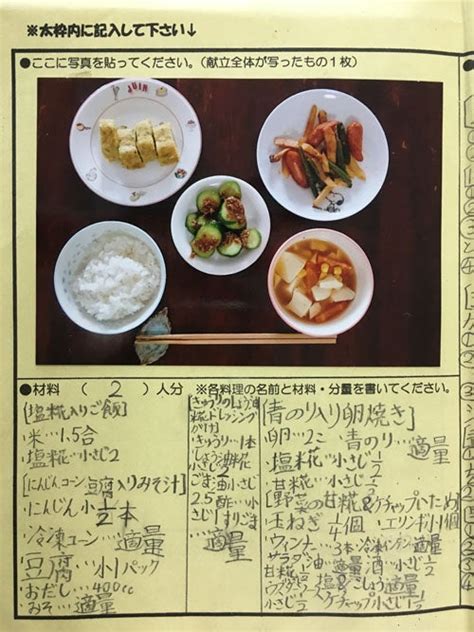 ※太枠内に記入して下さい↓
●ここに写真を貼ってください。(献立全体が写ったもの1枚)
●材料 ( 2 )人分 ※各料理の名前と材料・分量を書いてください。
[塩糀入りご飯]
米…1.5合
塩糀…小さじ2
[にんじん、コーン、豆腐入りみそ汁]
にんじん小1/2本
冷凍コーン…適量
豆腐…小1パック
おだし…400cc
みそ…適量
[きゅうりのしょう油
糀ドレッシング
がけ]
きゅうり…1本
しょう油糀
小さじ2
ごま油…小さじ
2.5 酢…小さ
じ1 すりごま
…適量
[青のり入り卵焼き]
卵…2こ 青のり…適量
塩糀…小さじ1/2
甘糀…小さじ1/2
[野菜の甘糀&ケチャップいため]
玉ねぎ1/4個 エリンギ小1個
ウィンナー…3本 冷凍インゲン適量
サラダ油…適量 酒…小さじ1/2